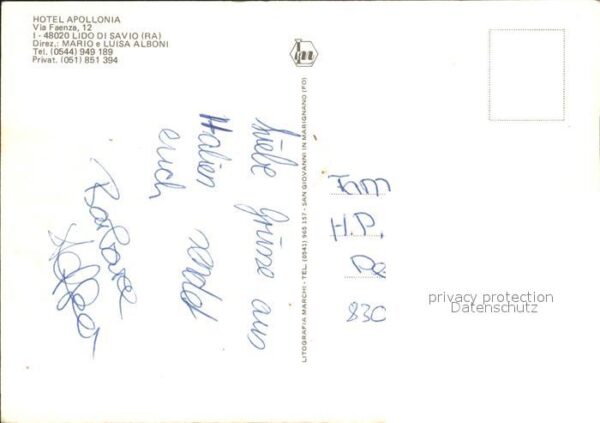 HOTEL APOLLONIA
Via Faenza, 12
I - 48020 LIDO DI SAVIO (RA)
Direz.: MARIO e LUISA ALBONI
Tel. (0544) 949 189
Privat. (051) 851 394
Liebe Grüsse aus
Italien sendet
euch
Barbara
LITOGRAFIA MARCHI - TEL. (0543) 965 157 - SAN GIOVANNI IN MARIGNANO (FO)
Fam
H.P.
830
privacy protection
Datenschutz